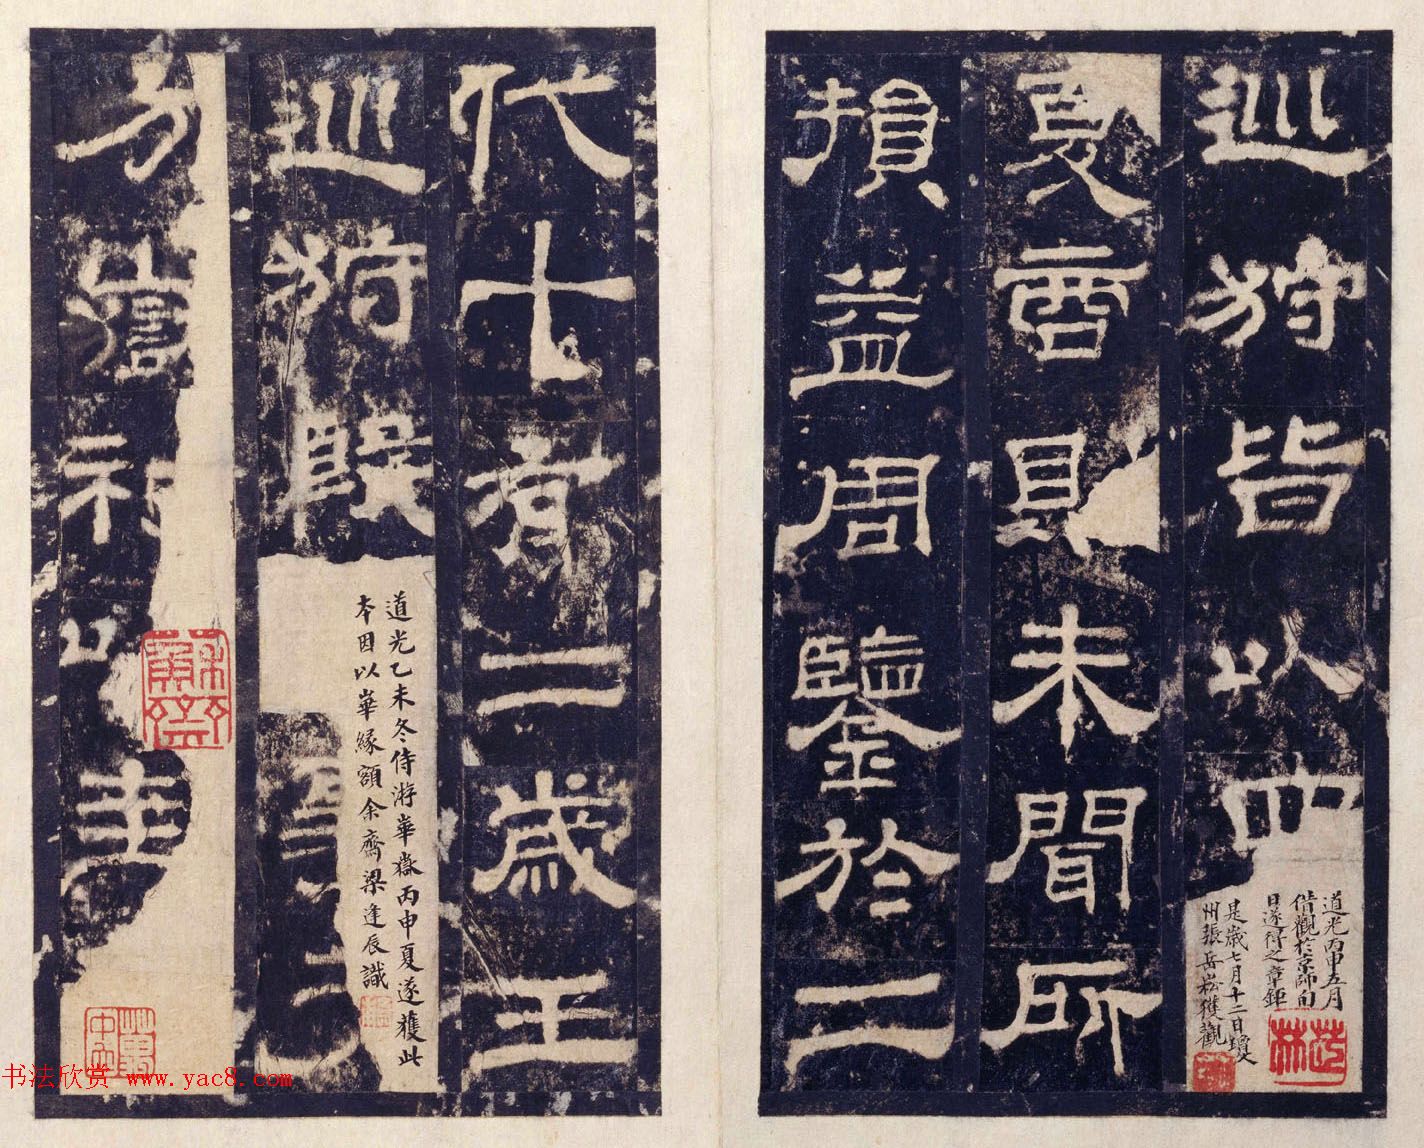 巡狩皆以四
道光丙申五月
偕觀於京師向
日遂得之章鉅
是歲七月十二日瓊
州張岳崧獲觀
茝林
夏商則未聞所
損益周鑒於二
代十有二歲王
巡狩殷
道光乙未冬侍游華嶽丙申夏遂獲此
本因以華緣額余齋梁逢辰識
方嶽祀以圭
蘇齋
书法欣赏 www.yac8.com